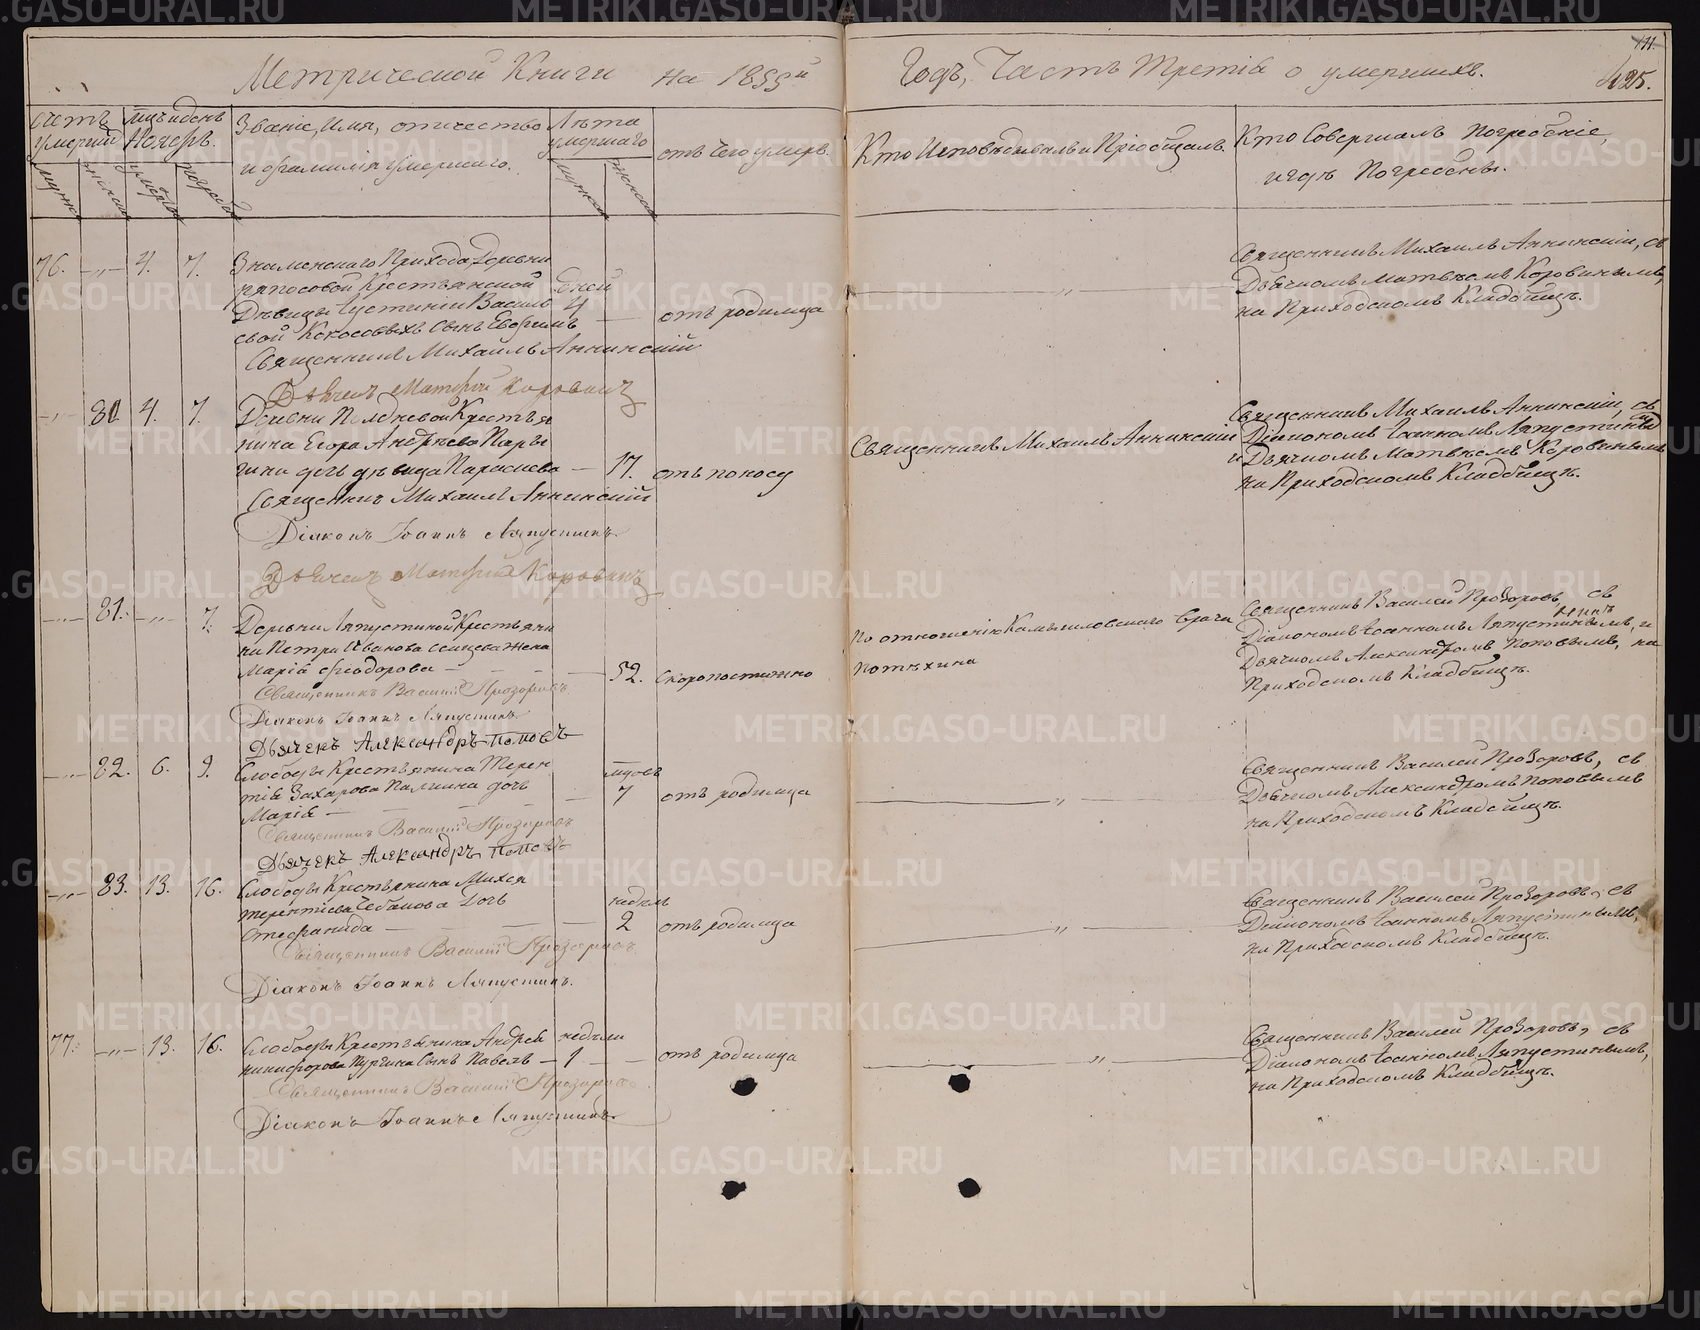 Метрической Книги на 1855й Годъ, Часть Третія о умершихъ.
425.
счетъ умерш
мць и день Ноябрь.
Званіе, Имя, отчество и фамилія умершаго.
Лѣта умершаго
отъ чего умеръ.
Кто Исповѣдывалъ и Пріобщалъ.
Кто Совершалъ погребеніе, и гдѣ Погребены.
76. —„— 4. 7.
Знаменскаго Прихода, Деревни
Крестьянской
Дѣвицы Іустиніи Василь
евой Кокосовыхъ Сынъ Евфимъ
дней
4
отъ родимца
Священникъ Михаилъ Аннинскій, съ
Дьячкомъ Матвѣемъ Коровинымъ,
на Приходскомъ Кладбищѣ.
Священникъ Михаилъ Аннинскій
Дьячекъ Матфей Коровинъ
—„— 80 4. 7.
Деревни Полдневой Крестья
нина Егора Андрѣева Пары
гина дочь дѣвица Параскева — 17. отъ поносу
Священникъ Михаилъ Аннинскій
Священникъ Михаилъ Аннинскій, съ
Діакономъ Іоанномъ Ляпустинымъ
и Дьячкомъ Матвѣемъ Коровинымъ
на Приходскомъ Кладбищѣ.
Священникъ Михаилъ Аннинскій
Діаконъ Іоаннъ Ляпустинъ.
Дьячекъ Матфей Коровинъ
—„— 81. —„— 7.
Деревни Ляпустиной Крестьяни
на Петра Иванова жена
Марія Ѳеодорова — 52. Скоропостижно
По отношенію Камышловскаго врача
Потѣхина
Священникъ Василій Прозоровъ, съ
Діакономъ Іоанномъ Ляпустинымъ, и
Дьячкомъ Александромъ Поповымъ, на
Приходскомъ Кладбищѣ.
Священникъ Василій Прозоровъ
Діаконъ Іоаннъ Ляпустинъ.
Дьячекъ Александръ Поповъ
—„— 82. 6. 9.
Слободы Крестьянина Терен
тія Захарова Палкина дочь
Марія —
мцовъ
7
отъ родимца
—„—
Священникъ Василій Прозоровъ, съ
Дьячкомъ Александромъ Поповымъ
на Приходскомъ Кладбищѣ.
Священникъ Василій Прозоровъ
Дьячекъ Александръ Поповъ
—„— 83. 13. 16.
Слободы Крестьянина Михея
Терентіева Чебакова Дочь
Стефанида —
недѣль
2
отъ родимца
—„—
Священникъ Василій Прозоровъ, съ
Діакономъ Іоанномъ Ляпустинымъ,
на Приходскомъ Кладбищѣ.
Священникъ Василій Прозоровъ.
Діаконъ Іоаннъ Ляпустинъ.
77. —„— 13. 16.
Слободы Крестьянина Андрея
Никифорова Пургина Сынъ Павелъ —
недѣли
1
отъ родимца
—„—
Священникъ Василій Прозоровъ, съ
Діакономъ Іоанномъ Ляпустинымъ,
на Приходскомъ Кладбищѣ.
Священникъ Василій Прозоровъ
Діаконъ Іоаннъ Ляпустинъ.
METRIKI.GASO-URAL.RU